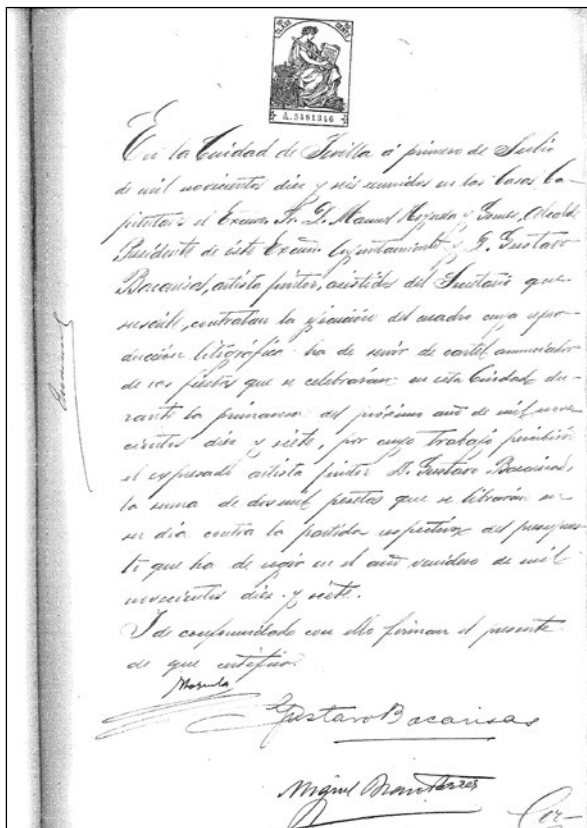 A.5481346
En la Ciudad de Sevilla á primero de Julio
de mil novecientos diez y seis reunidos en las Casas Ca-
pitulares el Excmo. Sr. D. Manuel Hoyuela y Gomez, Alcalde
Presidente de éste Excmo. Ayuntamiento y D. Gustavo
Bacarisas, artista pintor, asistidos del Secretario que
suscribe, contratan la ejecución del cuadro cuya repro-
ducción litográfica ha de servir de cartel anunciador
de las fiestas que se celebrarán en esta Ciudad du-
rante la primavera del próximo año de mil nove-
cientos diez y siete, por cuyo trabajo percibirá
el expresado artista pintor D. Gustavo Bacarisas,
la suma de dos mil pesetas que se librarán en
su dia contra la partida respectiva del presupues-
to que ha de regir en el año venidero de mil
novecientos diez y siete.
Y de conformidad con ello firman el presente
de que certifico.
Hoyuela
Gustavo Bacarisas
Miguel Bravo Ferrer
Cer-